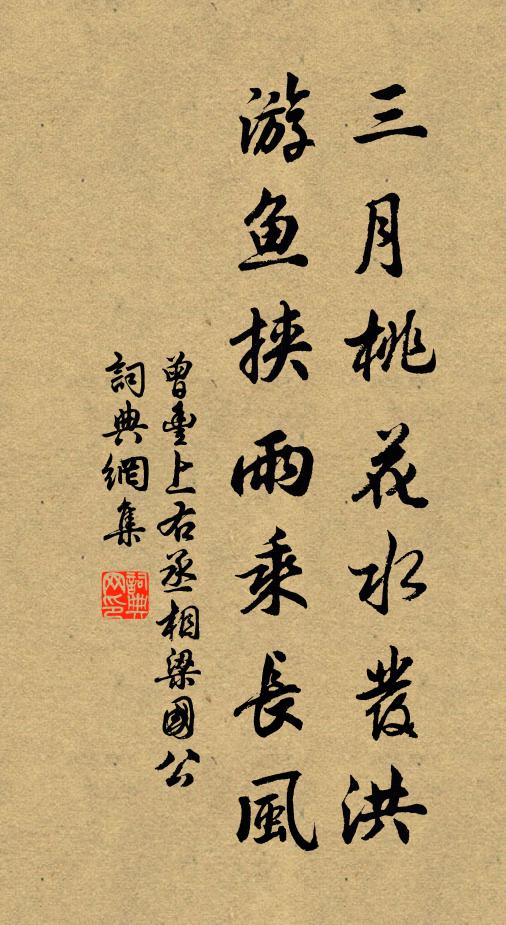 三月桃花水發洪
游鱼挾雨乘長風
曾豊上右丞相梁國公
詞典網集
詞典网印